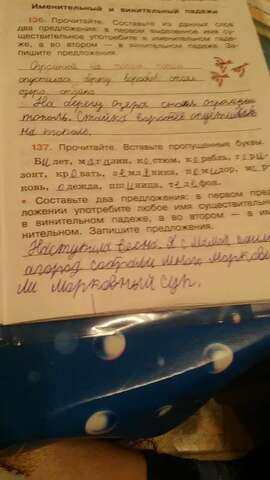 Именительный и винительный падежи
136. Прочитайте. Составьте из данных слов
два предложения: в первом выделенное имя су-
ществительное употребите в именительном паде-
же, а во втором — в винительном падеже. За-
пишите предложения.
Огромный, на, тополь, тополь,
опустилась, берег, воробьёв, стоял,
озера, стайка
На берегу озера стоял огромный
тополь. Стайка воробьёв опустилась
на тополь.
137. Прочитайте. Вставьте пропущенные буквы.
Билет, магазин, костюм, корабль, гори-
зонт, кровать, земляника, помидор, мор-
ковь, одежда, пшеница, телефон.
• Составьте два предложения: в первом пред-
ложении употребите любое имя существительное
в винительном падеже, а во втором — в име-
нительном. Запишите предложения.
Наступила весна. Я с мамой
огород собрали много морков
ли морковный суп.